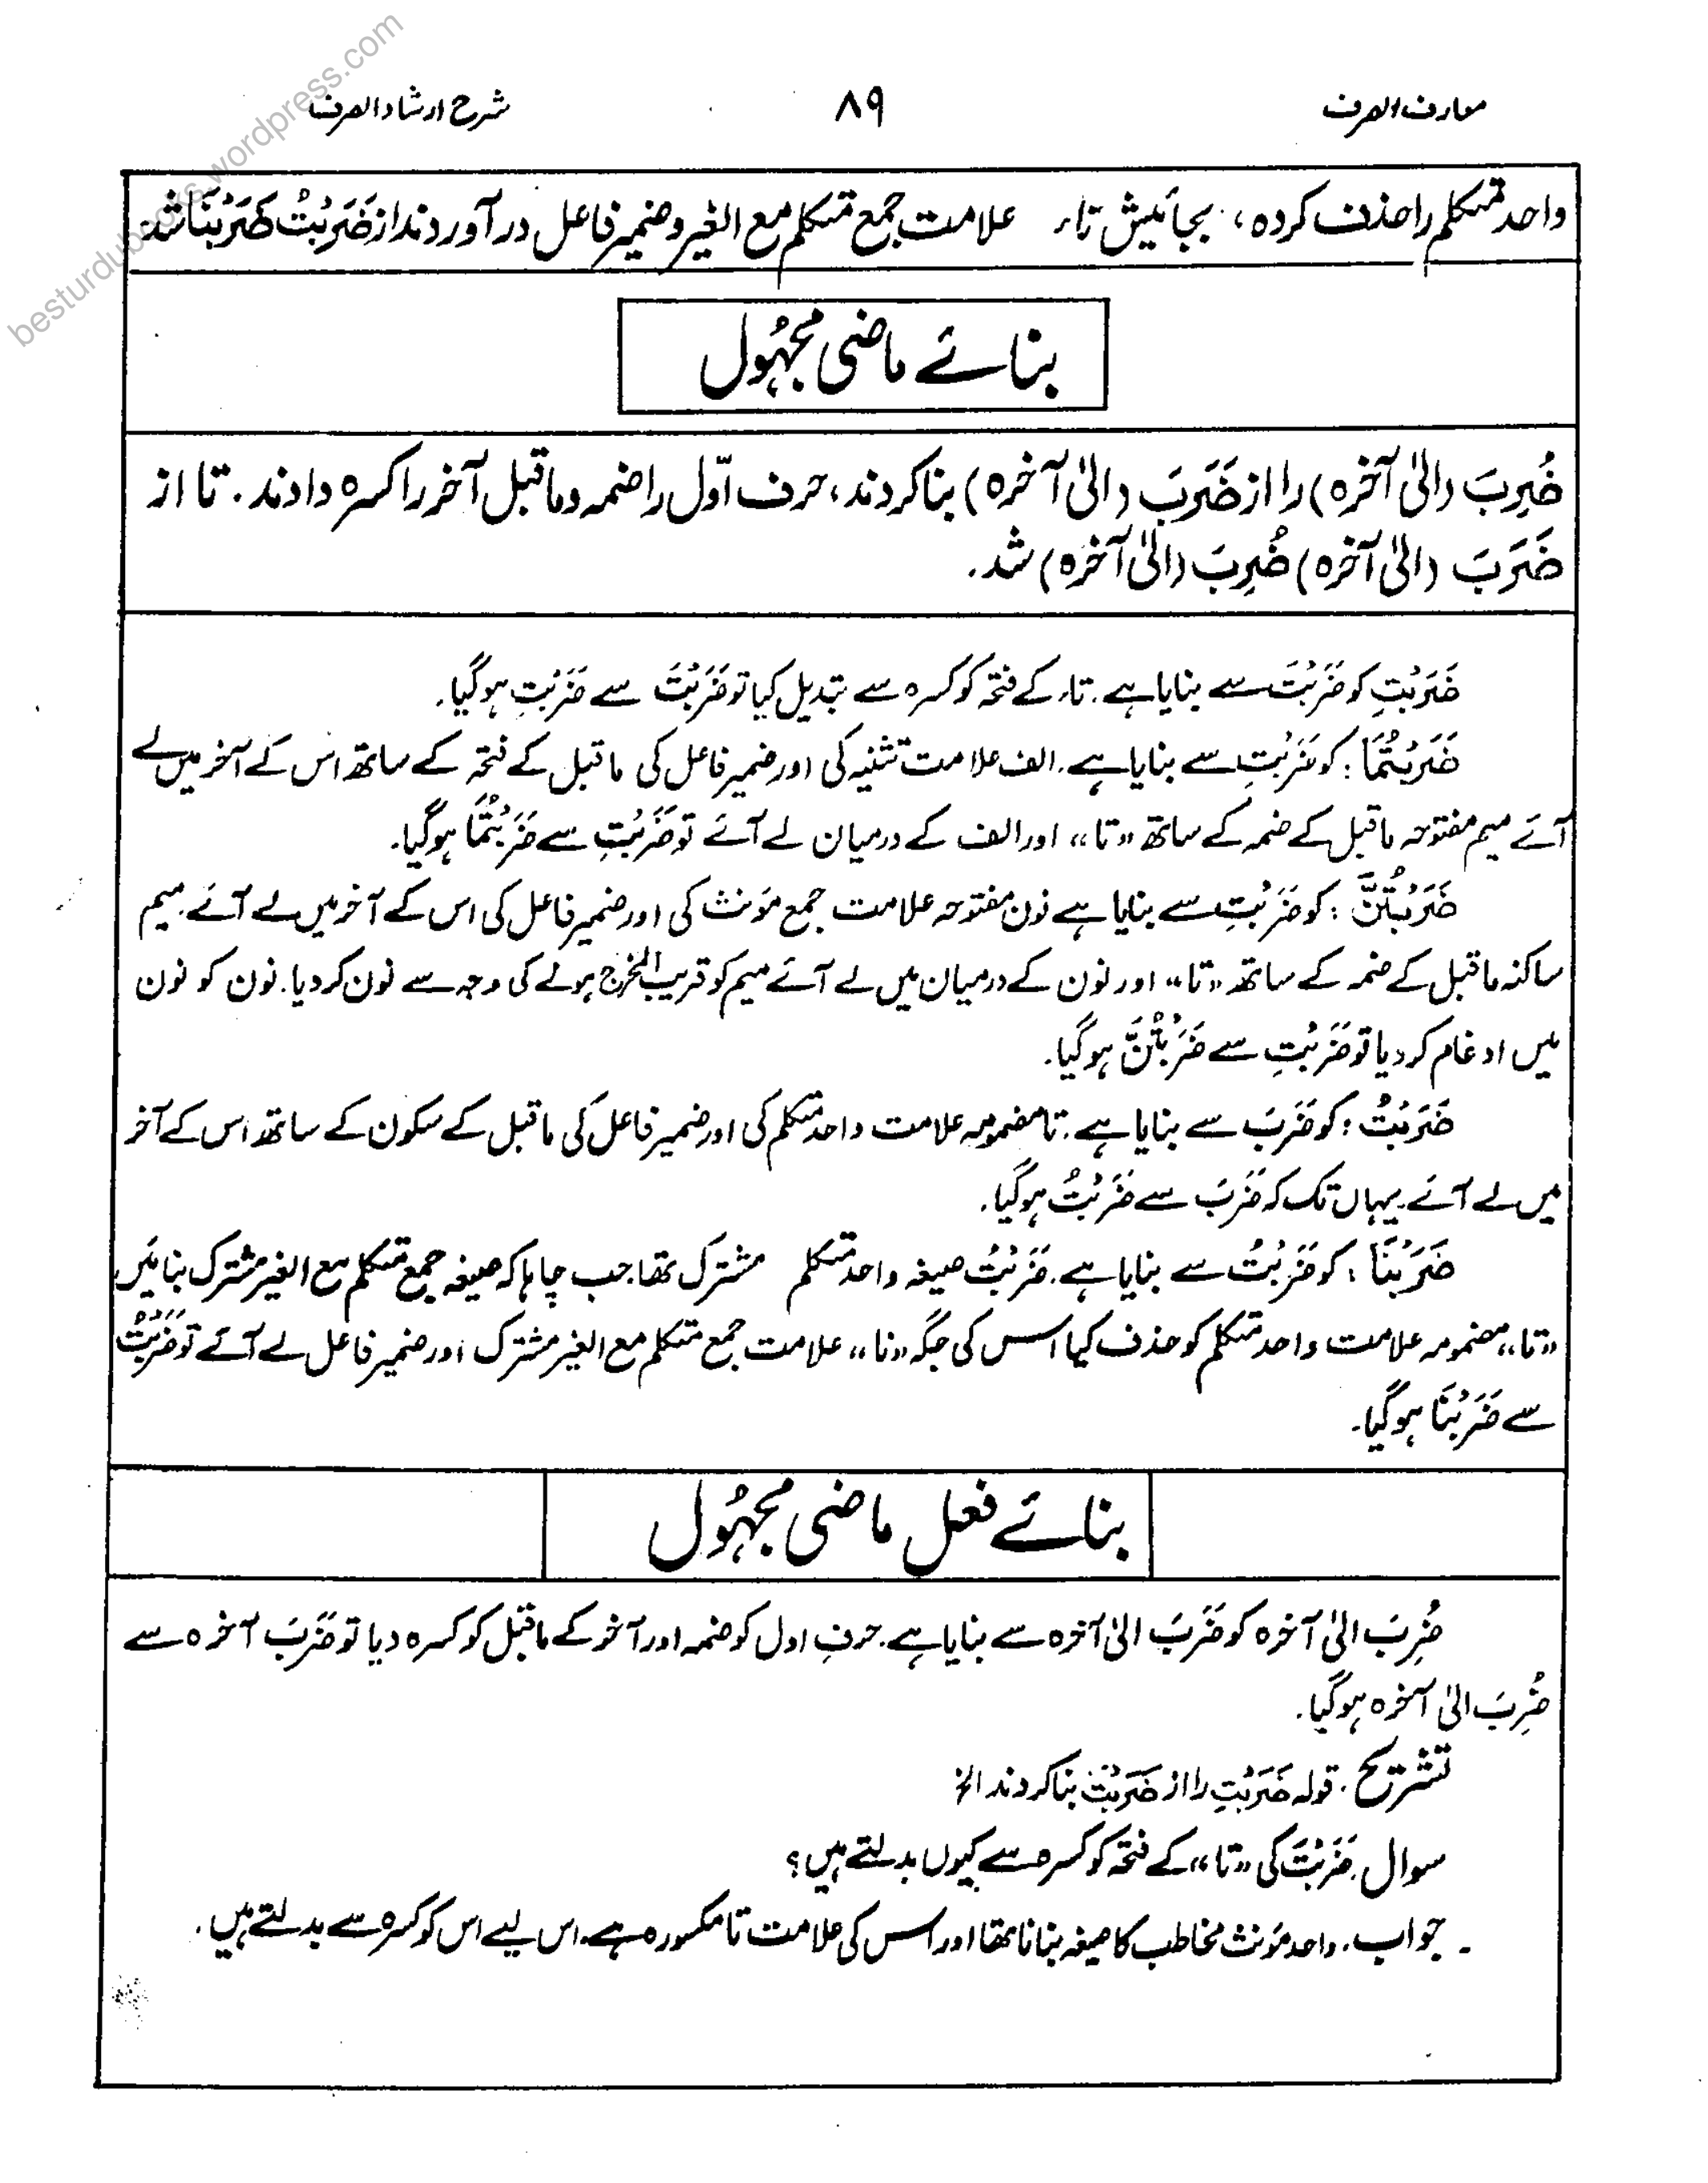 معارف الصرف ۸۹ شرح ارشاد الصرف
besturdubooks.wordpress.com
واحد متکلم را حذف کرده، بجائیش تاء علامت جمع متکلم مع الغیر و ضمیر فاعل در آوردند از ضَرَبْتُ ضَرَبْنَا شد
بنائے ماضی مجہُول
ضُرِبَ (الیٰ آخرہ) را از ضَرَبَ (الیٰ آخرہ) بنا کردند، حرف اوّل را ضمہ و ماقبل آخر را کسرہ دادند۔ تا از
ضَرَبَ (الیٰ آخرہ) ضُرِبَ (الیٰ آخرہ) شد۔
ضَرَبْتِ کو ضَرَبْتَ سے بنایا ہے۔ تاء کے فتحہ کو کسرہ سے تبدیل کیا تو ضَرَبْتَ سے ضَرَبْتِ ہوگیا۔
ضَرَبْتُمَا: کو ضَرَبْتِ سے بنایا ہے۔ الف علامت تثنیہ کی اور ضمیر فاعل کی ماقبل کے فتحہ کے ساتھ اس کے آخر میں لے
آئے میم مفتوحہ ماقبل کے ضمہ کے ساتھ «تا» اور الف کے درمیان لے آئے تو ضَرَبْتِ سے ضَرَبْتُمَا ہوگیا۔
ضَرَبْتُنَّ: کو ضَرَبْتِ سے بنایا ہے نون مفتوحہ علامت جمع مؤنث کی اور ضمیر فاعل کی اس کے آخر میں لے آئے۔ میم
ساکنہ ماقبل کے ضمہ کے ساتھ «تا» اور نون کے درمیان میں لے آئے میم کو قریب المخرج ہونے کی وجہ سے نون کردیا۔ نون کو نون
میں ادغام کردیا تو ضَرَبْتِ سے ضَرَبْتُنَّ ہوگیا۔
ضَرَبْتُ: کو ضَرَبَ سے بنایا ہے۔ تا مضمومہ علامت واحد متکلم کی اور ضمیر فاعل کی ماقبل کے سکون کے ساتھ اس کے آخر
میں لے آئے۔ یہاں تک کہ ضَرَبَ سے ضَرَبْتُ ہوگیا۔
ضَرَبْنَا: کو ضَرَبْتُ سے بنایا ہے۔ ضَرَبْتُ صیغہ واحد متکلم مشترک تھا جب چاہا کہ صیغہ جمع متکلم مع الغیر مشترک بنائیں
«تا» مضمومہ علامت واحد متکلم کو حذف کیا اس کی جگہ «نا» علامت جمع متکلم مع الغیر مشترک اور ضمیر فاعل لے آئے تو ضَرَبْتُ
سے ضَرَبْنَا ہوگیا۔
بنائے فعل ماضی مجہُول
ضُرِبَ الیٰ آخرہ کو ضَرَبَ الیٰ آخرہ سے بنایا ہے۔ حرفِ اول کو ضمہ اور آخر کے ماقبل کو کسرہ دیا تو ضَرَبَ آخرہ سے
ضُرِبَ الیٰ آخرہ ہوگیا۔
تشریح۔ قولہ ضَرَبْتِ را از ضَرَبْتَ بنا کردند الخ
سوال۔ ضَرَبْتَ کی «تا» کے فتحہ کو کسرہ سے کیوں بدلتے ہیں؟
۔ جواب۔ واحد مؤنث مخاطب کا صیغہ بنانا تھا اور اس کی علامت تا مکسورہ ہے۔ اس لیے اس کو کسرہ سے بدلتے ہیں۔